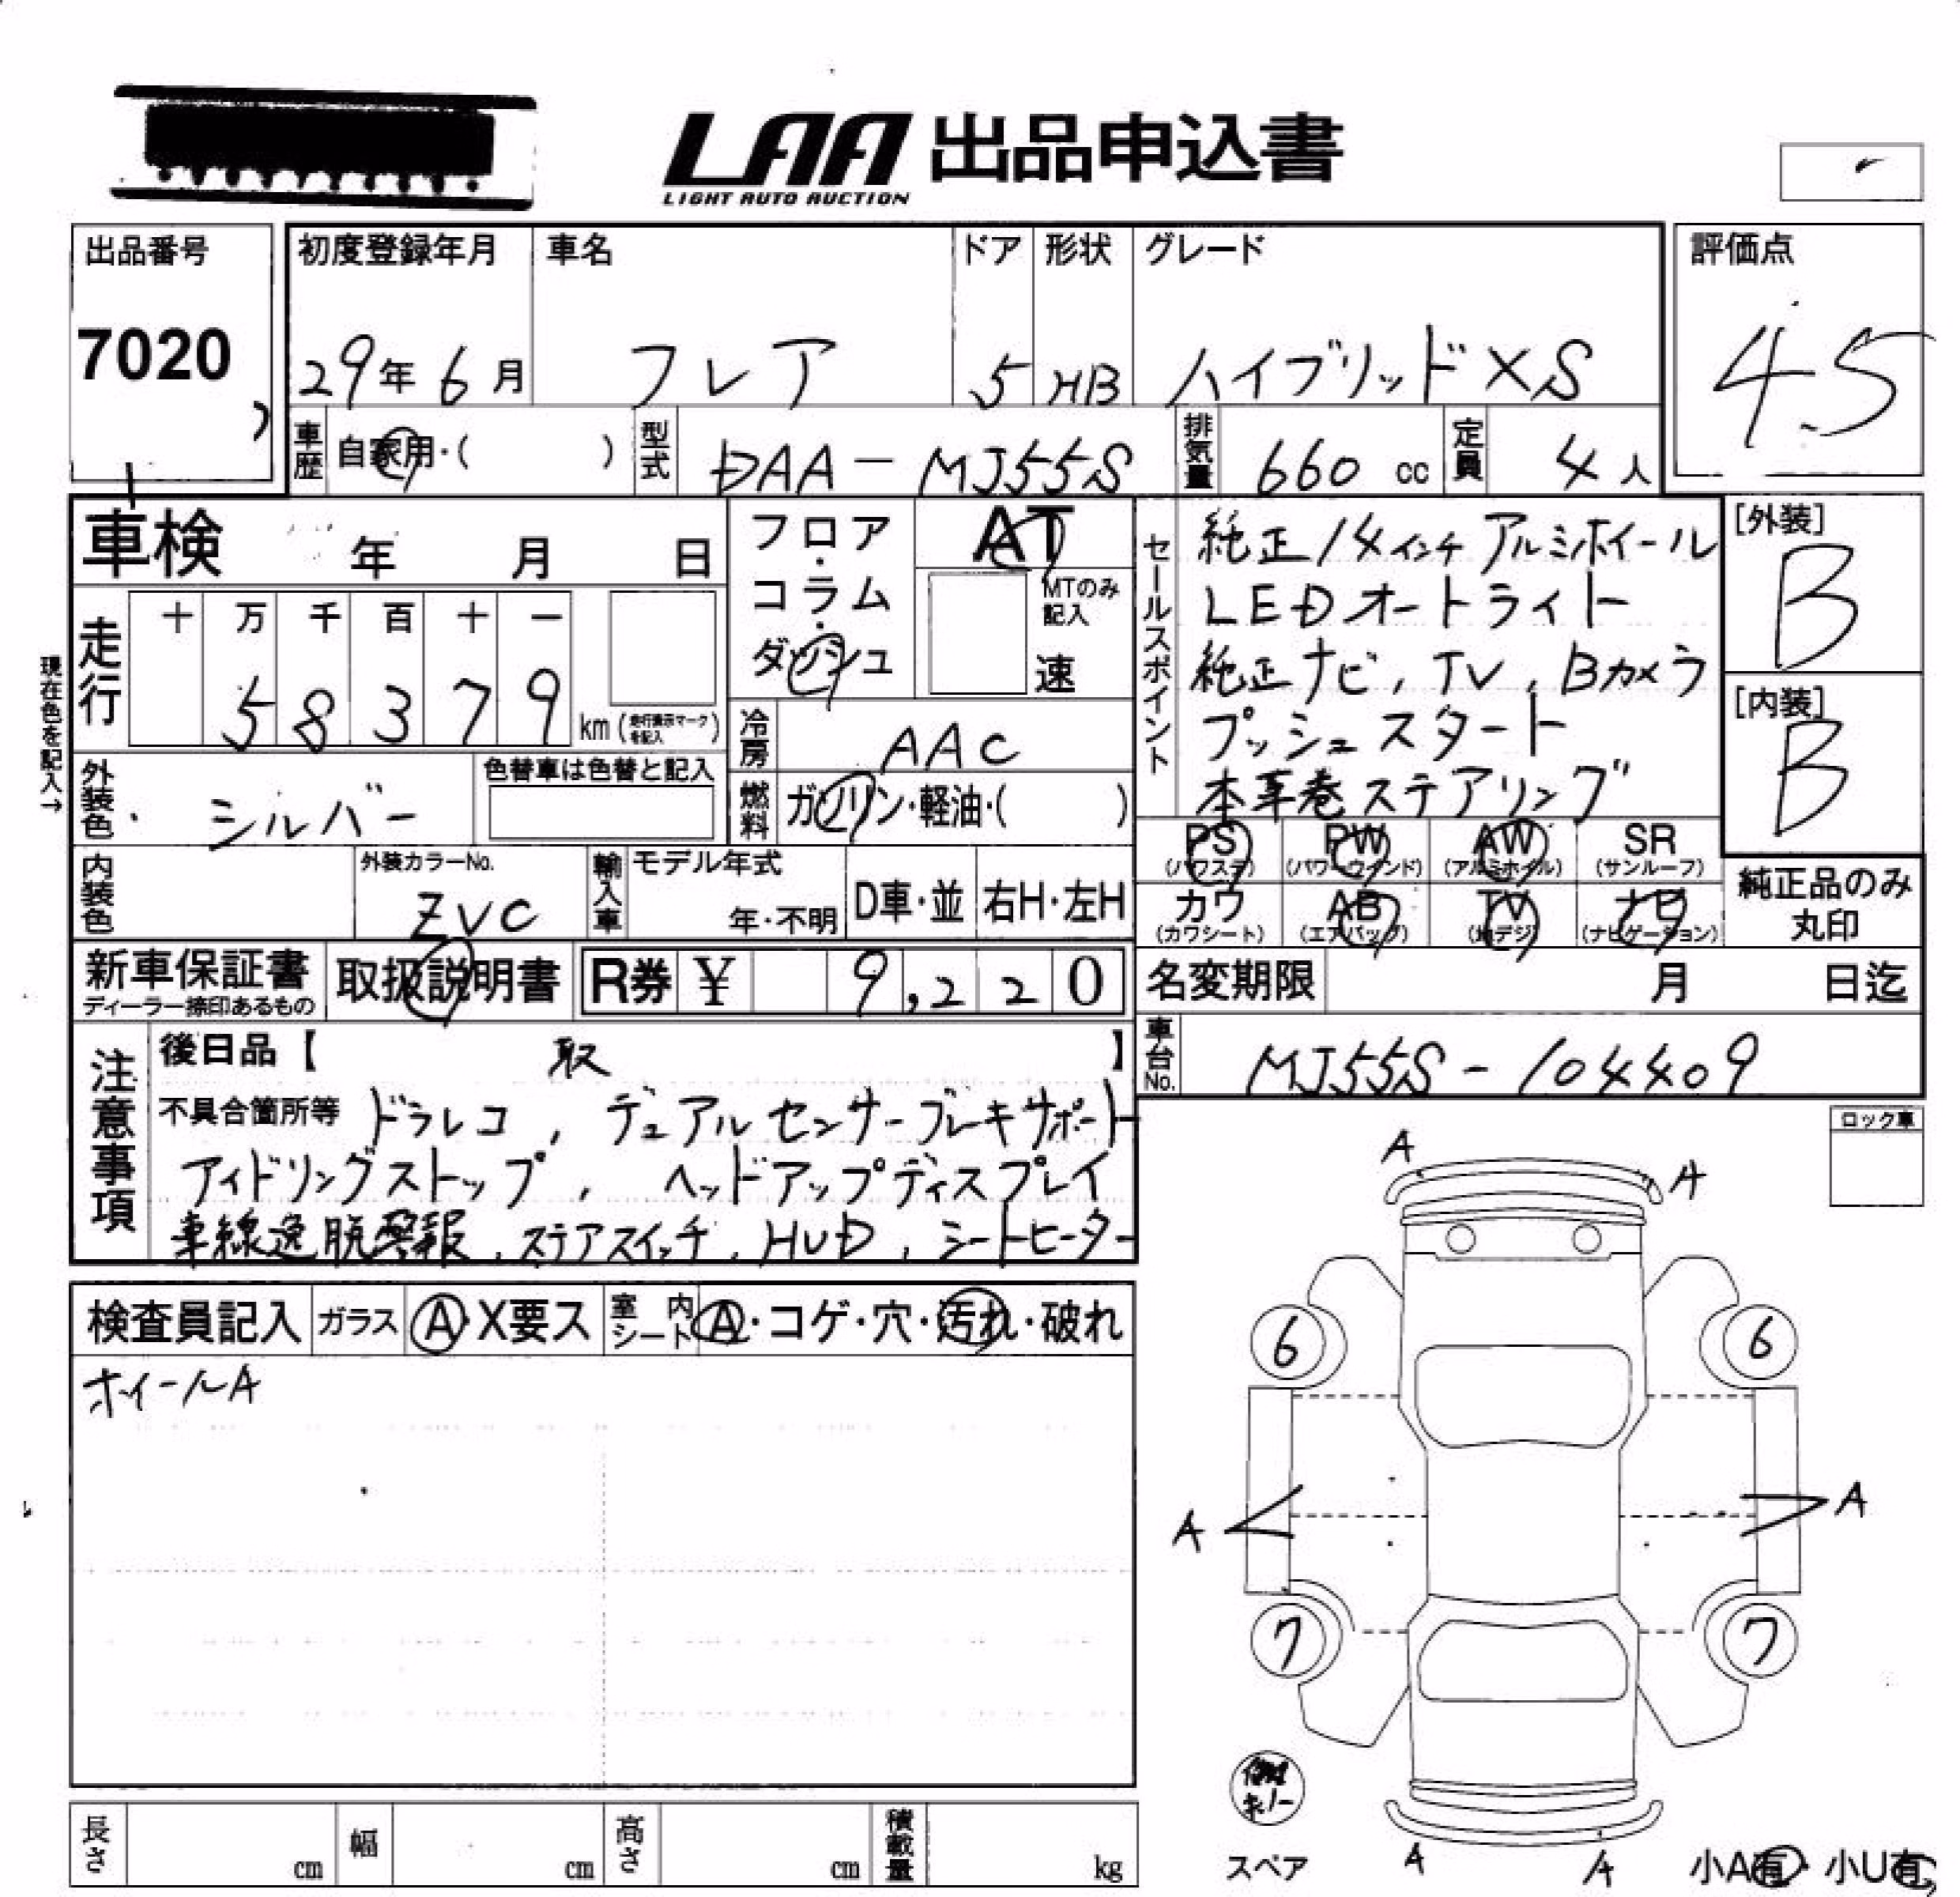 LAA 出品申込書
LIGHT AUTO AUCTION
出品番号
7020
初度登録年月
29年 6月
車名
フレア
ドア
5
形状
HB
グレード
ハイブリッド XS
評価点
4.5
車歴
自家用・( )
型式
DAA-MJ55S
排気量
660 cc
定員
4 人
車検 年 月 日
フロア・コラム・ダッシュ
AT
MTのみ記入
速
現在色を記入→
走行
十 万 千 百 十 一
5 8 3 7 9
km (走行表示マークを記入)
冷房
AAC
外装色
シルバー
色替車は色替と記入
燃料
ガソリン・軽油・( )
内装色
外装カラーNo.
ZVC
輸入車
モデル年式
年・不明
D車・並
右H・左H
新車保証書
ディーラー捺印あるもの
取扱説明書
R券 ¥ 9,220
セールスポイント
純正14インチアルミホイール
LEDオートライト
純正ナビ, TV, Bカメラ
プッシュスタート
本革巻ステアリング
[外装]
B
[内装]
B
PS (パワステ)
PW (パワーウインド)
AW (アルミホイル)
SR (サンルーフ)
カワ (カワシート)
AB (エアバッグ)
TV (地デジ)
ナビ (ナビゲーション)
純正品のみ丸印
名変期限 月 日迄
車台No.
MJ55S-104409
注意事項
後日品【 取 】
不具合箇所等 ドラレコ, デュアルセンサーブレーキサポート
アイドリングストップ, ヘッドアップディスプレイ
車線逸脱警報, ステアスイッチ, HUD, シートヒーター
ロック車
検査員記入
ガラス
A・X要ス
室内シート
A・コゲ・穴・汚れ・破れ
ホイールA
A
A
6
6
A
A
7
7
スペア
A
A
小A有・小U有
長さ cm
幅 cm
高さ cm
積載量 kg